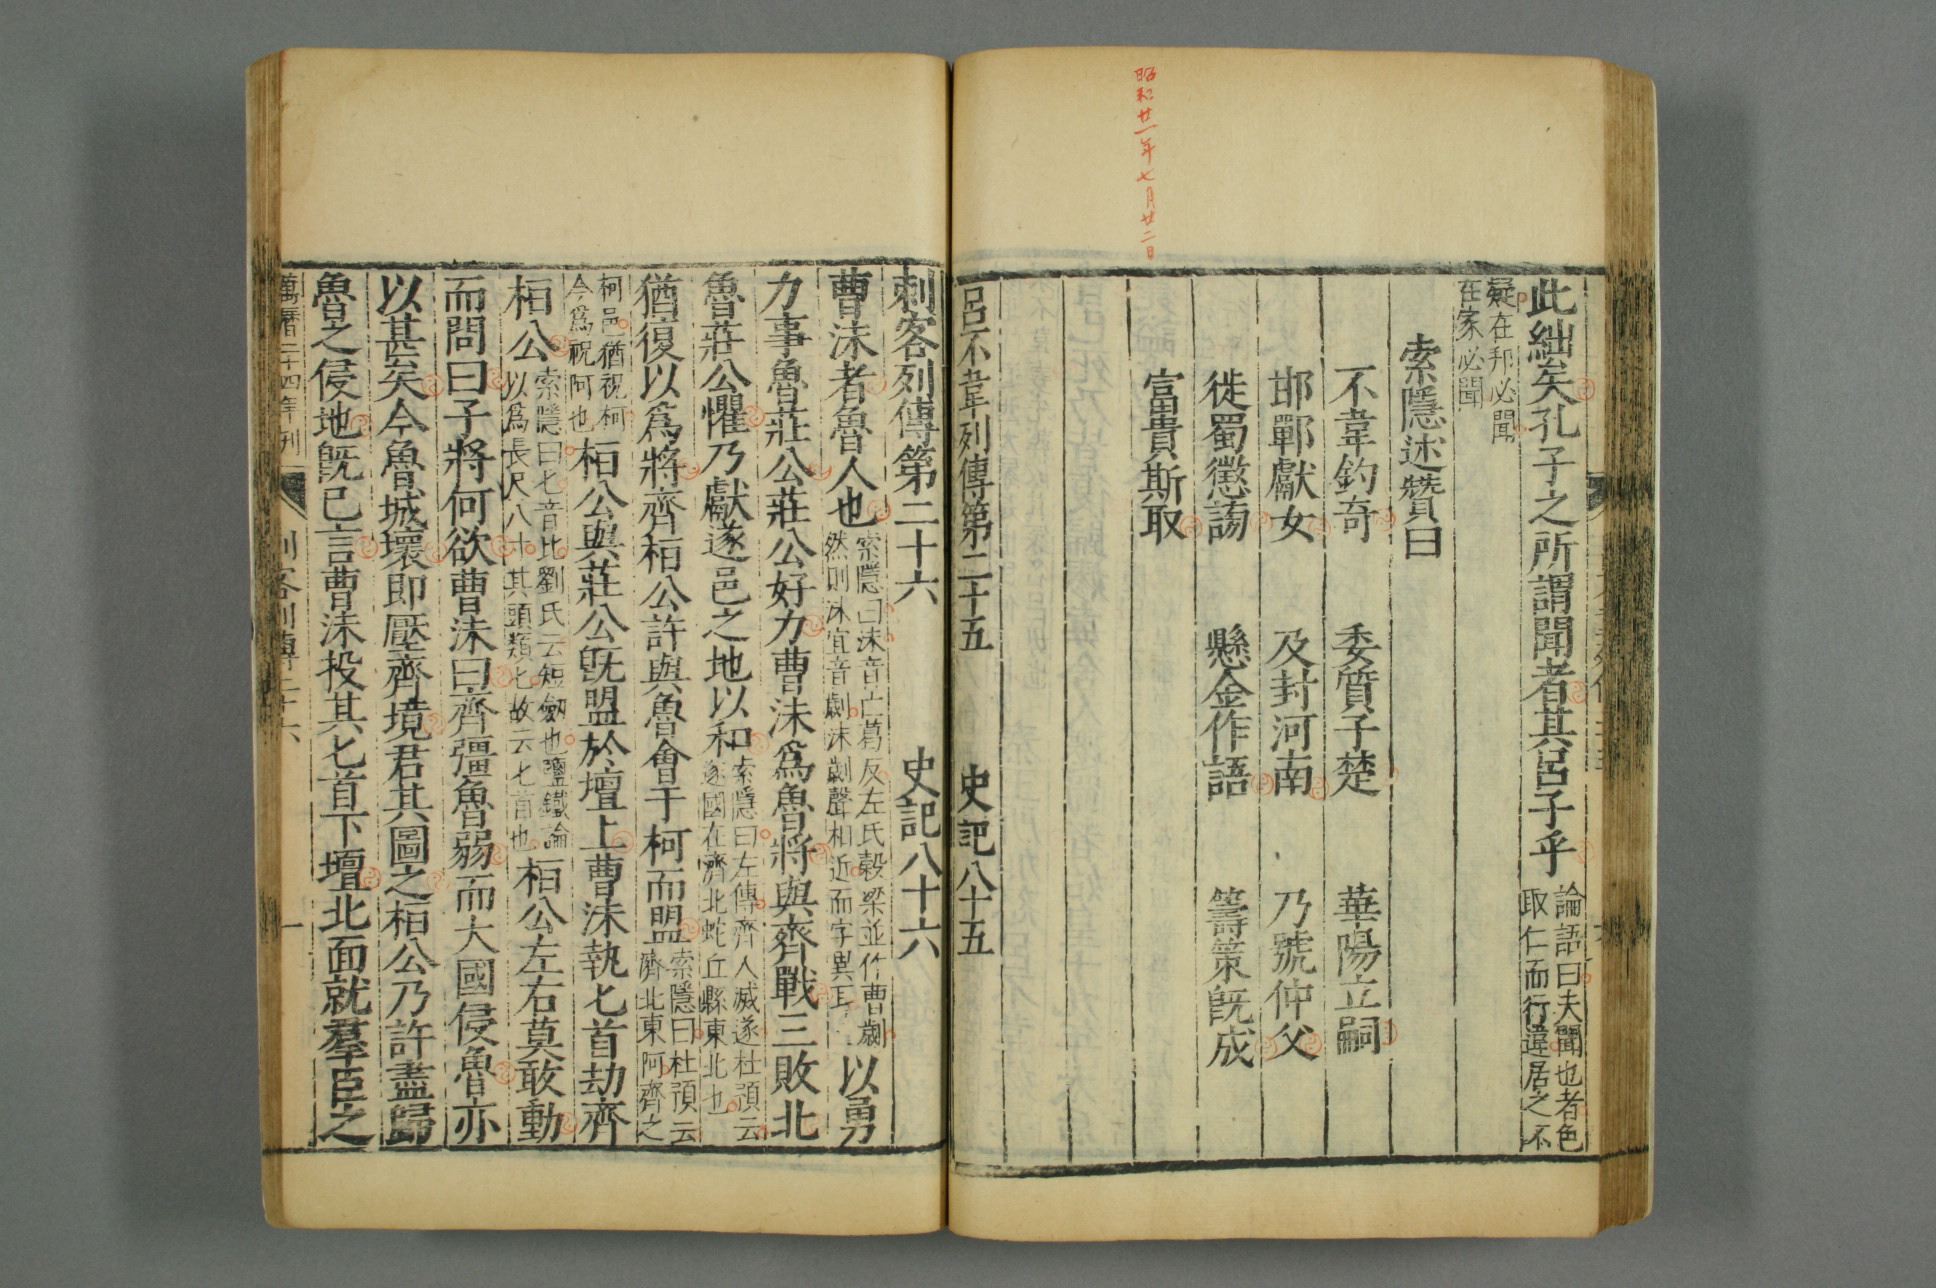 昭和廿一年七月廿二日
此絀矣孔子之所謂聞者其呂子乎論語曰夫聞也者色
取仁而行違居之不
疑在邦必聞
在家必聞
索隱述贊曰
不韋釣奇 委質子楚 華陽立嗣
邯鄲獻女 及封河南 乃號仲父
徙蜀懲謗 懸金作語 籌策既成
富貴斯取
呂不韋列傳第二十五 史記八十五
刺客列傳第二十六 史記八十六
曹沬者魯人也索隱曰沬音亡葛反左氏穀梁並作曹劌
然則沬宜音劌沬劌聲相近而字異耳以勇
力事魯莊公莊公好力曹沬爲魯將與齊戰三敗北
魯莊公懼乃獻遂邑之地以和索隱曰左傳齊人滅遂杜預云
遂國在濟北蛇丘縣東北也
猶復以爲將齊桓公許與魯會于柯而盟索隱曰杜預云
濟北東阿齊之
柯邑猶祝柯
今爲祝阿也桓公與莊公既盟於壇上曹沬執匕首劫齊
桓公索隱曰匕音比劉氏云短劒也鹽鐵論
以爲長尺八寸其頭類匕故云匕首也桓公左右莫敢動
而問曰子將何欲曹沬曰齊彊魯弱而大國侵魯亦
以甚矣今魯城壞即壓齊境君其圖之桓公乃許盡歸
魯之侵地既已言曹沬投其匕首下壇北面就羣臣之
萬曆二十四年刊 刺客列傳二十六 一